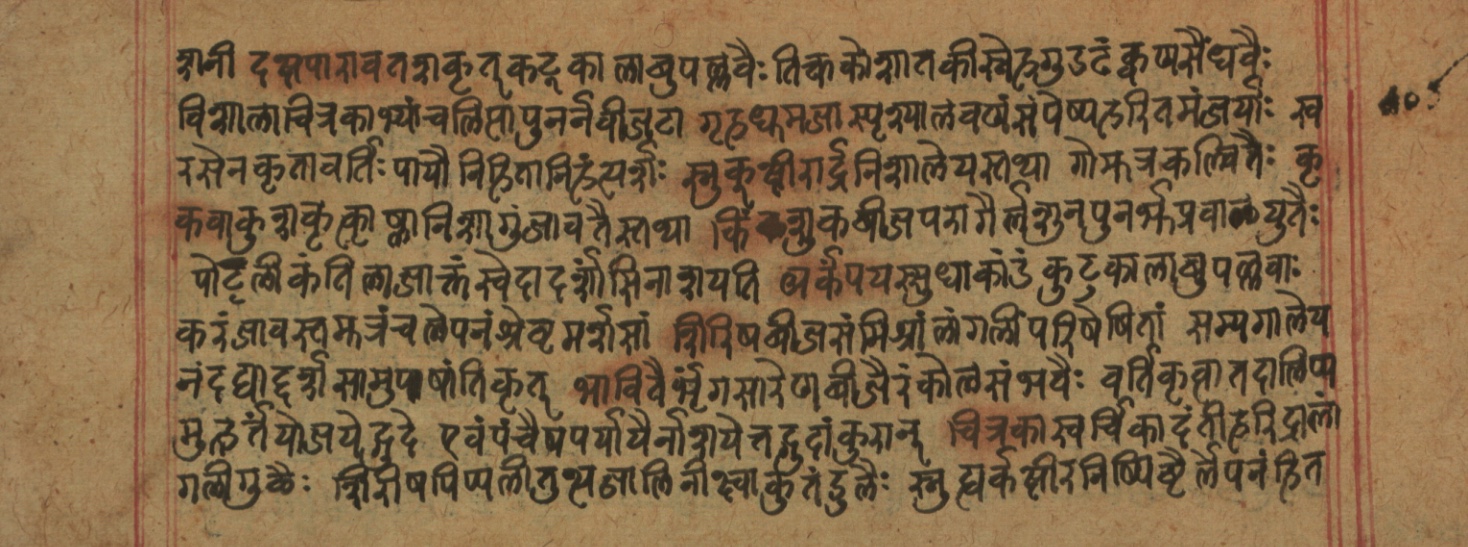 शानी दक्षपारावतशकृत् कटुकालाबुपल्लवैः तिक्तकोशातकीस्वेहगुडटंकणसैंधवैः
विशालाचित्रकाभ्यां च लिप्तां पुनर्नवीजटा गृहधूमजास्पृश्यालवणं संपेष्य हरितमंजर्याः स्व
रसेन कृता वर्तिः पायौ निहिता निहंत्यर्शः स्नुक् क्षीरार्द्रनिशालेपस्तथा गोमूत्रकल्पितैः कृ
कवाकुशकृत्कृष्णानिशागुंजावतैस्तथा किंशुकबीजपरागैर्लशुनपुनर्भूप्रवालयुतैः
पोट्टलीकं तिलाजाक्तं स्वेदादर्शांसि नाशयति अर्कपयस्सुधाकांडं कटुकालाबुपल्लवाः
करंजावस्तमूत्रं च लेपनं श्रेष्ठमर्शसां शिरिषबीजसंमिश्रां लांगलीं परिषेषितां सम्यगालेप
नं दद्यादर्शसामुपशांतिकृत् भावितैर्भृंगसारेण बीजैरंकोलसंभवैः वर्तिं कृत्वा तदालिप्य
मुहूर्तं योजयेद्गुदे एवं पंचैषपर्यायैर्नाशयेत्तद्गुदांकुरान् चित्रकास्वर्चिकादंतीहरिद्रालां
गलीगुडैः शिरीषपिप्पलीतुत्थजालिनीक्ष्वाकुतंडुलैः स्नुह्यर्कक्षीरनिष्पिष्टैर्लेपनं हित